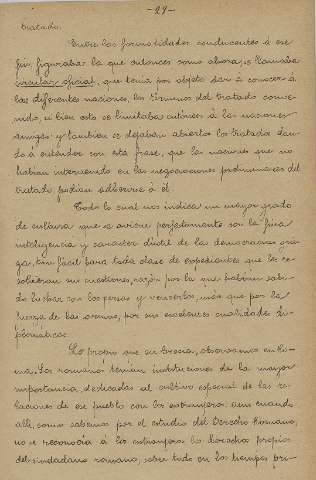 - 29 -
tratado.
Entre las formalidades conducentes á ese
fin, figuraba la que entonces como ahora, se llamaba
circular oficial, que tenia por objeto dar á conocer á
las diferentes naciones, los términos del tratado conve-
nido, si bien esto se limitaba entonces á las naciones
amigas y tambien se dejaban abiertos los tratados dan-
do á entender con esta frase, que las naciones que no
habian intervenido en las negociaciones preliminares del
tratado podian adherirse á él.
Todo lo cual nos indica un mayor grado
de cultura que se aviene perfectamente con la fina
inteligencia y caracter dúctil de las democracias grie-
gas, tan fácil para toda clase de expedientes que le re-
solvieran sus cuestiones, razón por la que habian sabi-
do luchar con los persas y vencerlos, más que por la
fuerza de las armas, por sus excelentes cualidades di-
plomáticas.
Lo propio que en Grecia, observamos en Ro-
ma. Los romanos tenian instituciones de la mayor
importancia, dedicadas al cultivo especial de las re-
laciones de ese pueblo con los extranjeros aun cuando
allí, como sabemos por el estudio del Derecho Romano,
no se reconocia á los extranjeros los derechos propios
del ciudadano romano, sobre todo en los tiempos pri-